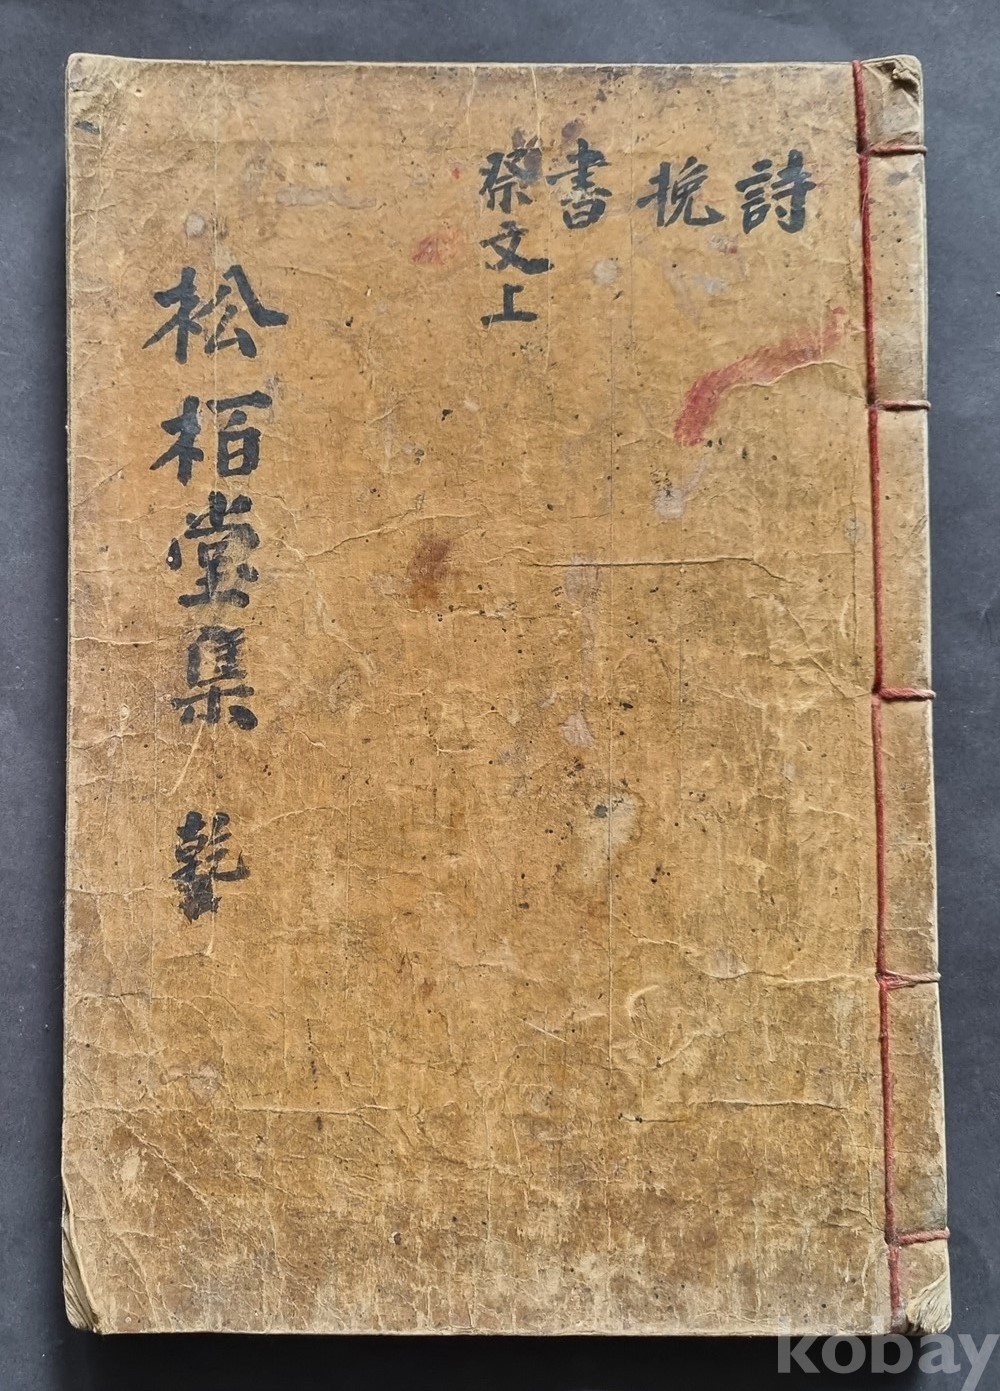 詩
挽
書
祭文上
松栢堂集 乾
kobay